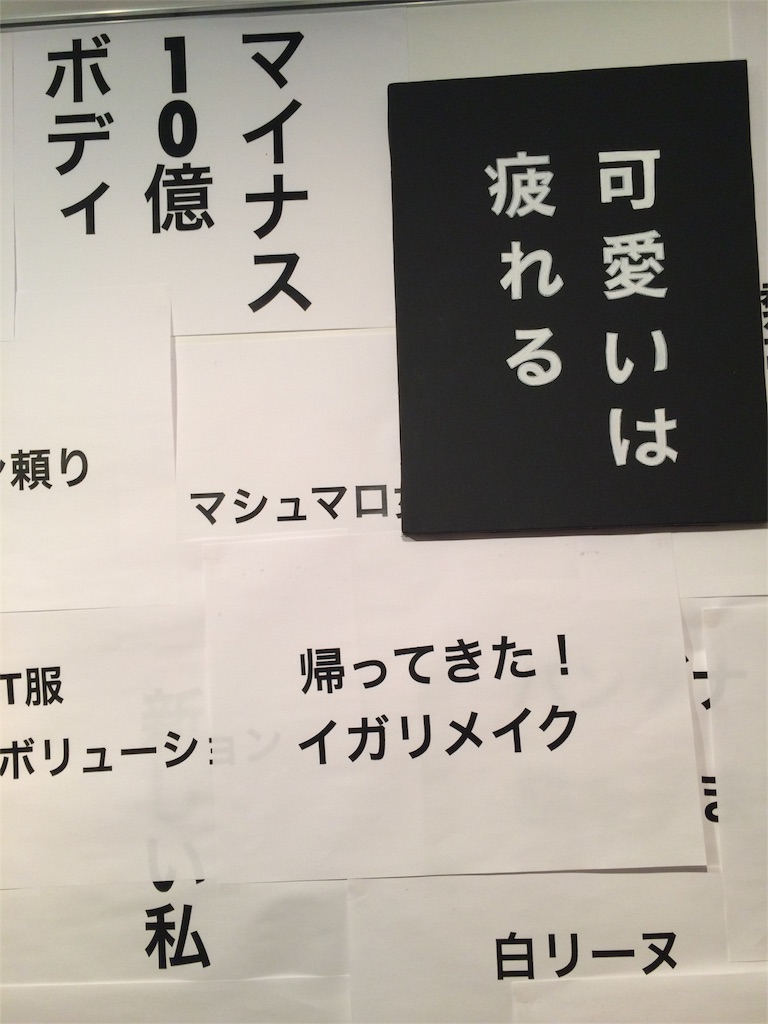 マイナス
10億
ボディ
可愛いは
疲れる
頼り
マシュマロ
帰ってきた！
イガリメイク
T服
ボリューション
新しい
私
白リーヌ